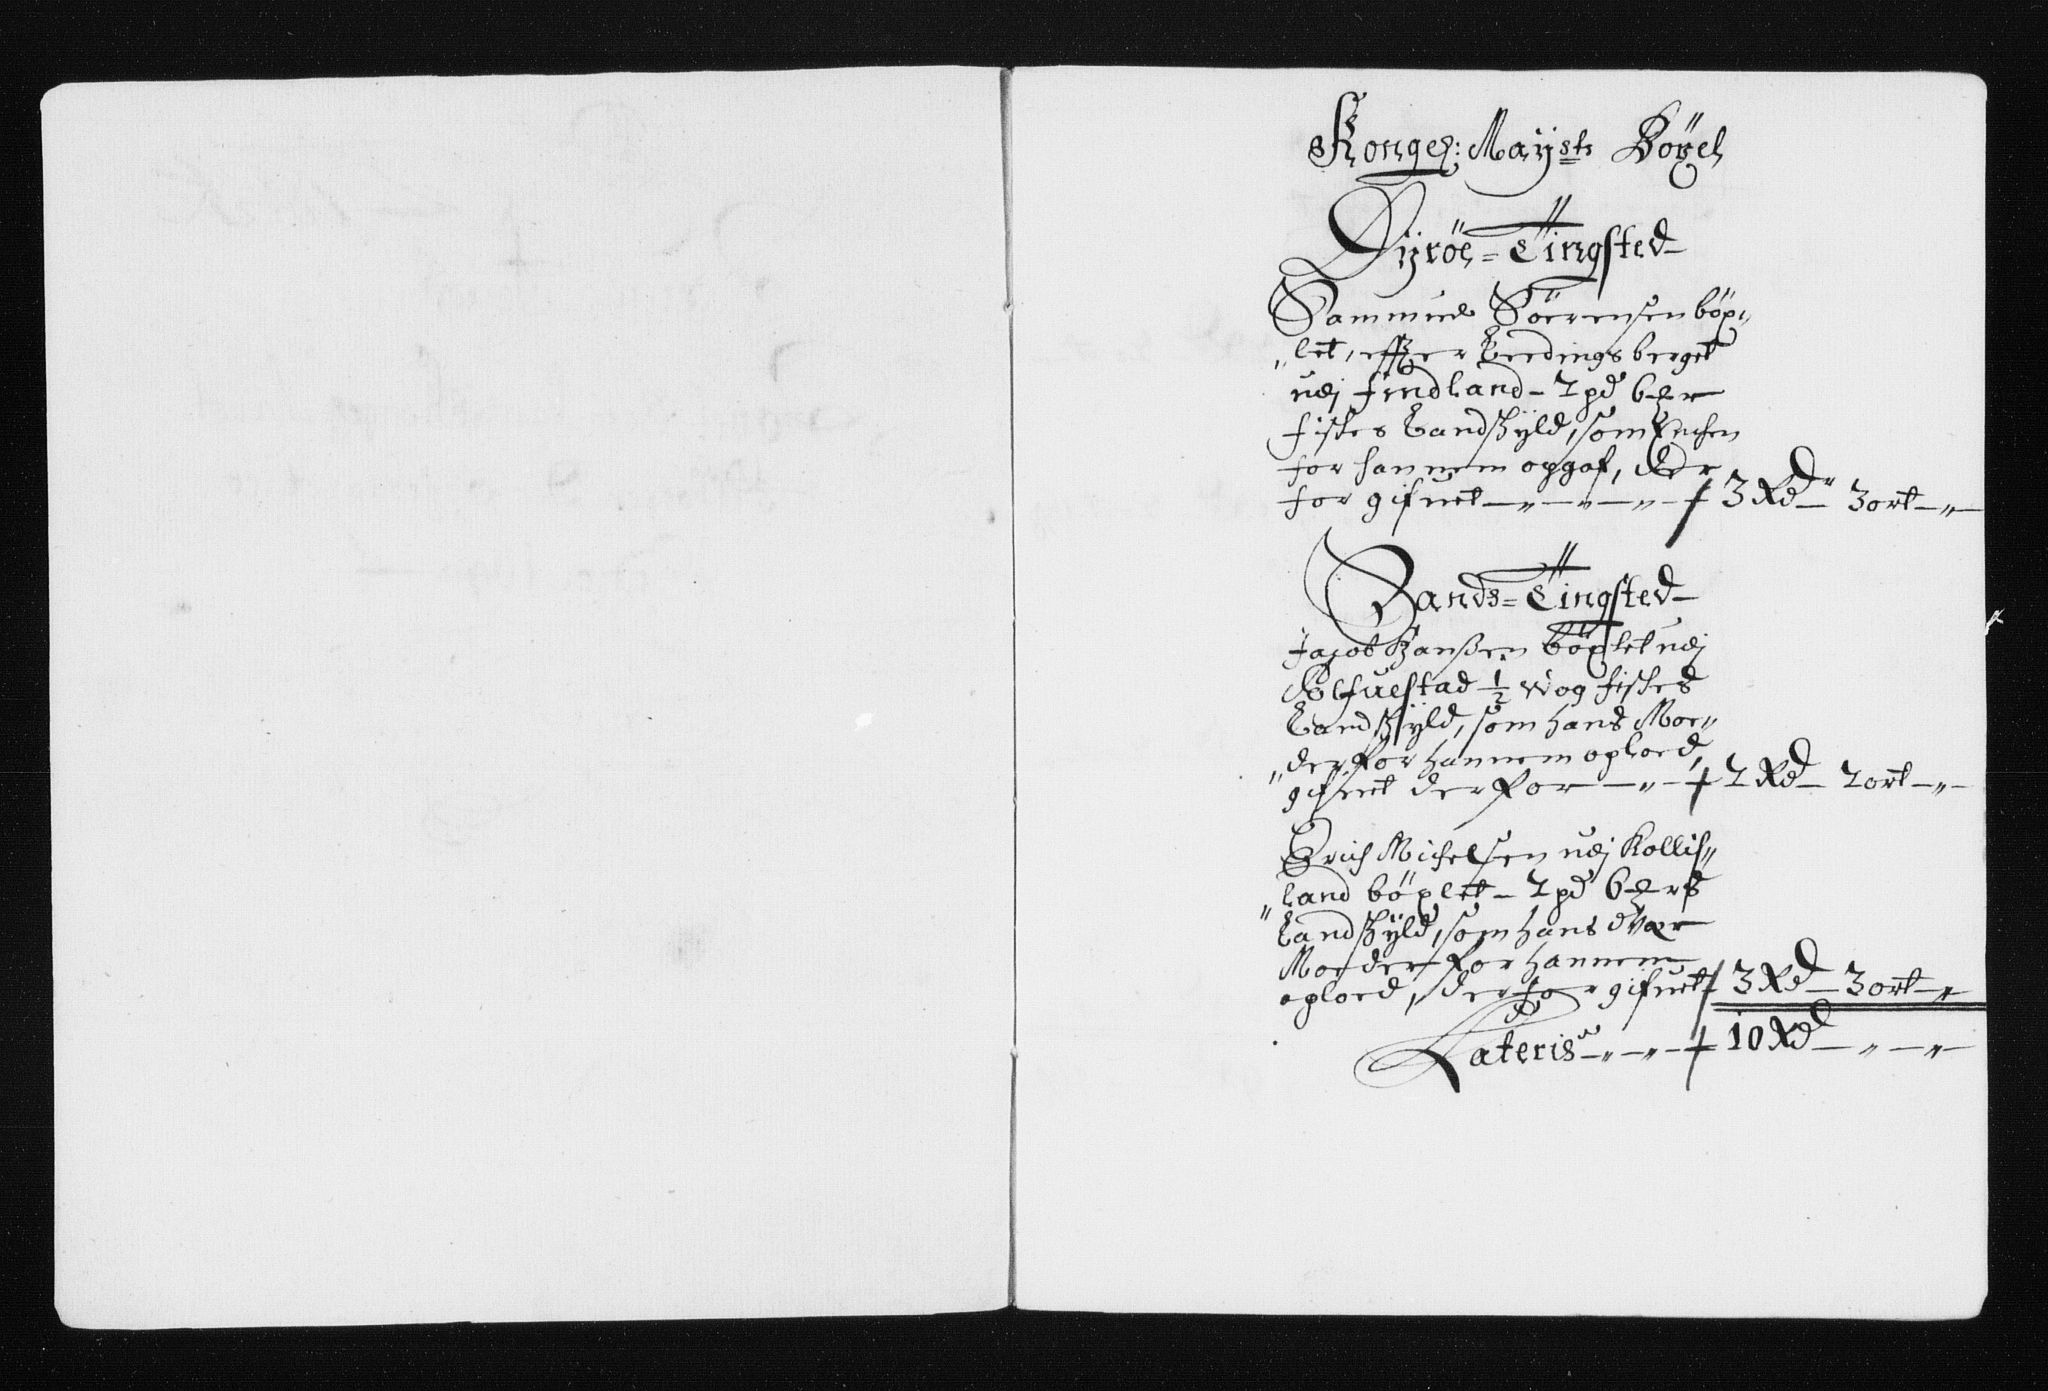 Kongel: Mayst: Böxel
Dyröe = Tingsted
Sammuel Söerensen böx„
„let, effter Leedings berget
udj findland – 2 pd 6
fiskes Landskyld, som Enchen
for hannem opgaf, der
for gifuet — 3 Rdr 3 ort –
Sands = Tingsted
Jacob Hanßen böxlet udj
Rolfuestad ½ wog fiskes
Landskyld, som hans Moe„
„der for hannem oploed,
gifuet der for — 2 Rd – 2 ort –
Erich Michelsen udj Kollis„
„land böxlet – 2 pd 6
Landskyld, som hans
Moeder for hannem
oploed, der for gifuet 3 Rd – 3 ort –
Lateris — 10 Rd –